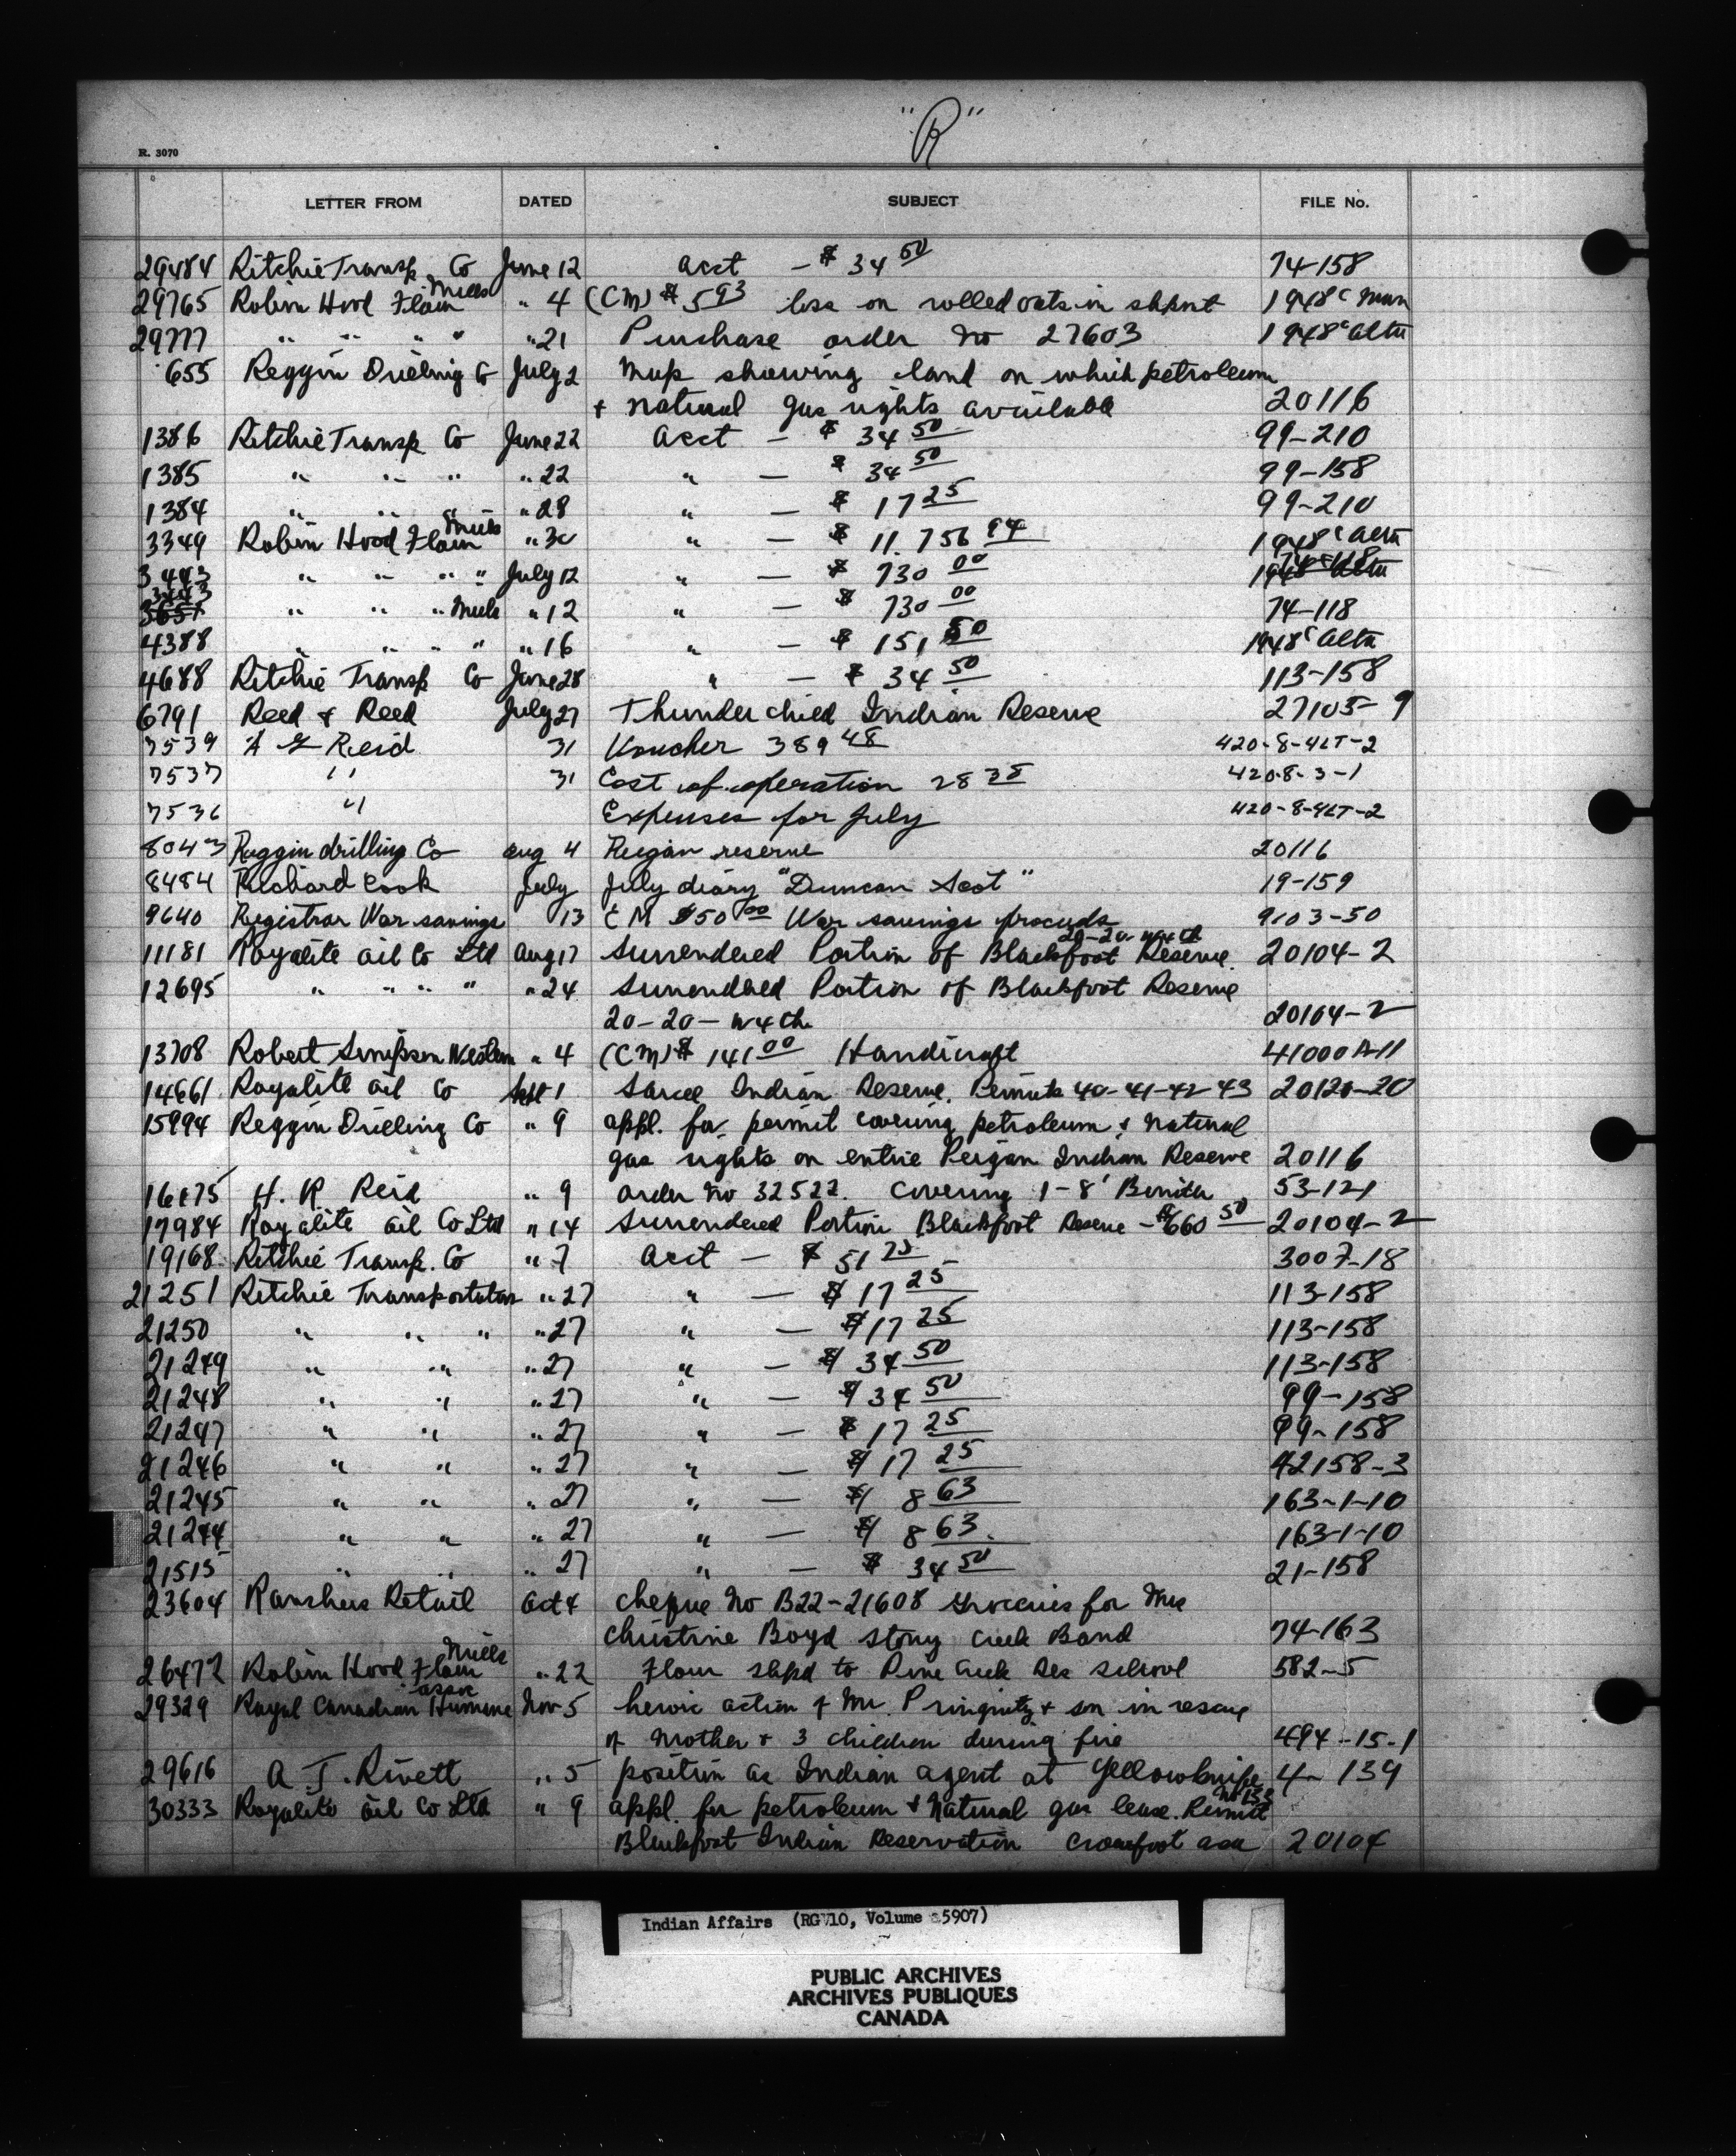 "R"
R. 3070
LETTER FROM DATED SUBJECT FILE No.
29484 Ritchie Transp Co June 12 acct - $ 34 50 74-158
29765 Robin Hood Flour Mills " 4 (CM) $ 5 93 loss on rolled oats in shpnt 1948 c Man
29777 " " " " " 21 Purchase order No 27603 1948 c alta
655 Reggin Drilling Co July 2 Map showing land on which petroleum
+ natural gas rights available 20116
1386 Ritchie Transp Co June 22 acct - $ 34 50 99-210
1385 " " " " 22 " - $ 34 50 99-158
1384 " " " " 28 " - $ 17 25 99-210
3349 Robin Hood Flour Mills " 30 " - $ 11.756 94 1948 c alta
3443 " " " " July 12 " - $ 730 00 74-118
3443 " " " Mills " 12 " - $ 730 00 74-118
4388 " " " " " 16 " - $ 151 50 1948 c alta
4688 Ritchie Transp Co June 28 " - $ 34 50 113-158
6791 Reed & Reed July 27 Thunderchild Indian Reserve 27103-9
7539 Reid 31 Voucher 389 48 420-8-4LT-2
7537 " 31 Cost of operation 28 38 420-8-3-1
7536 " Expenses for July 420-8-4LT-2
8043 Reggin drilling Co aug 4 Peigan reserve 20116
8484 Richard Cook July July diary "Duncan Scot" 19-159
9640 Registrar War savings 13 CM $50 00 War savings proceeds 9103-50
20-20-w4th
11181 Royalite Oil Co Ltd Aug 17 Surrendered Portion of Blackfoot Reserve. 20104-2
12695 " " " " " 24 Surrendered Portion of Blackfoot Reserve
20-20-w4th 20104-2
13708 Robert Simpson Western " 4 (CM) $ 141 00 Handicraft 41000A-11
14661 Royalite Oil Co Sept 1 Sarcee Indian Reserve. Permits 40-41-42-43 20120-20
15994 Reggin Drilling Co " 9 appl. for permit covering petroleum & natural
gas rights on entire Peigan Indian Reserve 20116
16175 H. R Reid " 9 order No 32522. covering 1-8' 53-121
17984 Royalite Oil Co Ltd " 14 Surrendered Portion Blackfoot Reserve - $660 50 20104-2
19168 Ritchie Transp. Co " 7 acct - $ 51 75 3007-18
21251 Ritchie Transportation " 27 " - $ 17 25 113-158
21250 " " " " 27 " - $ 17 25 113-158
21249 " " " 27 " - $ 34 50 113-158
21248 " " " 27 " - $ 34 50 99-158
21247 " " " 27 " - $ 17 25 99-158
21246 " " " 27 " - $ 17 25 42158-3
21245 " " " 27 " - $ 8 63 163-1-10
21244 " " " 27 " - $ 8 63 163-1-10
21515 " " " 27 " - $ 34 50 21-158
23604 Retail Oct 4 cheque No B22-21608 groceries for Mrs
Christine Boyd Stony Creek Band 74-163
26472 Robin Hood Flour Mills " 22 Flour shpd to Pine Creek Res school 582-5
29329 Royal Canadian Humane assoc Nov 5 heroic action of Mr. & son in rescue
of Mother & 3 children during fire 494-15-1
29616 A. J. Rivett " 5 position as Indian agent at Yellowknife 4-139
30333 Royalite Oil Co Ltd " 9 appl. for petroleum & Natural gas lease. Permit
Blackfoot Indian Reservation Crowfoot area 20104
Indian Affairs (RG 10, Volume 5907)
PUBLIC ARCHIVES
ARCHIVES PUBLIQUES
CANADA